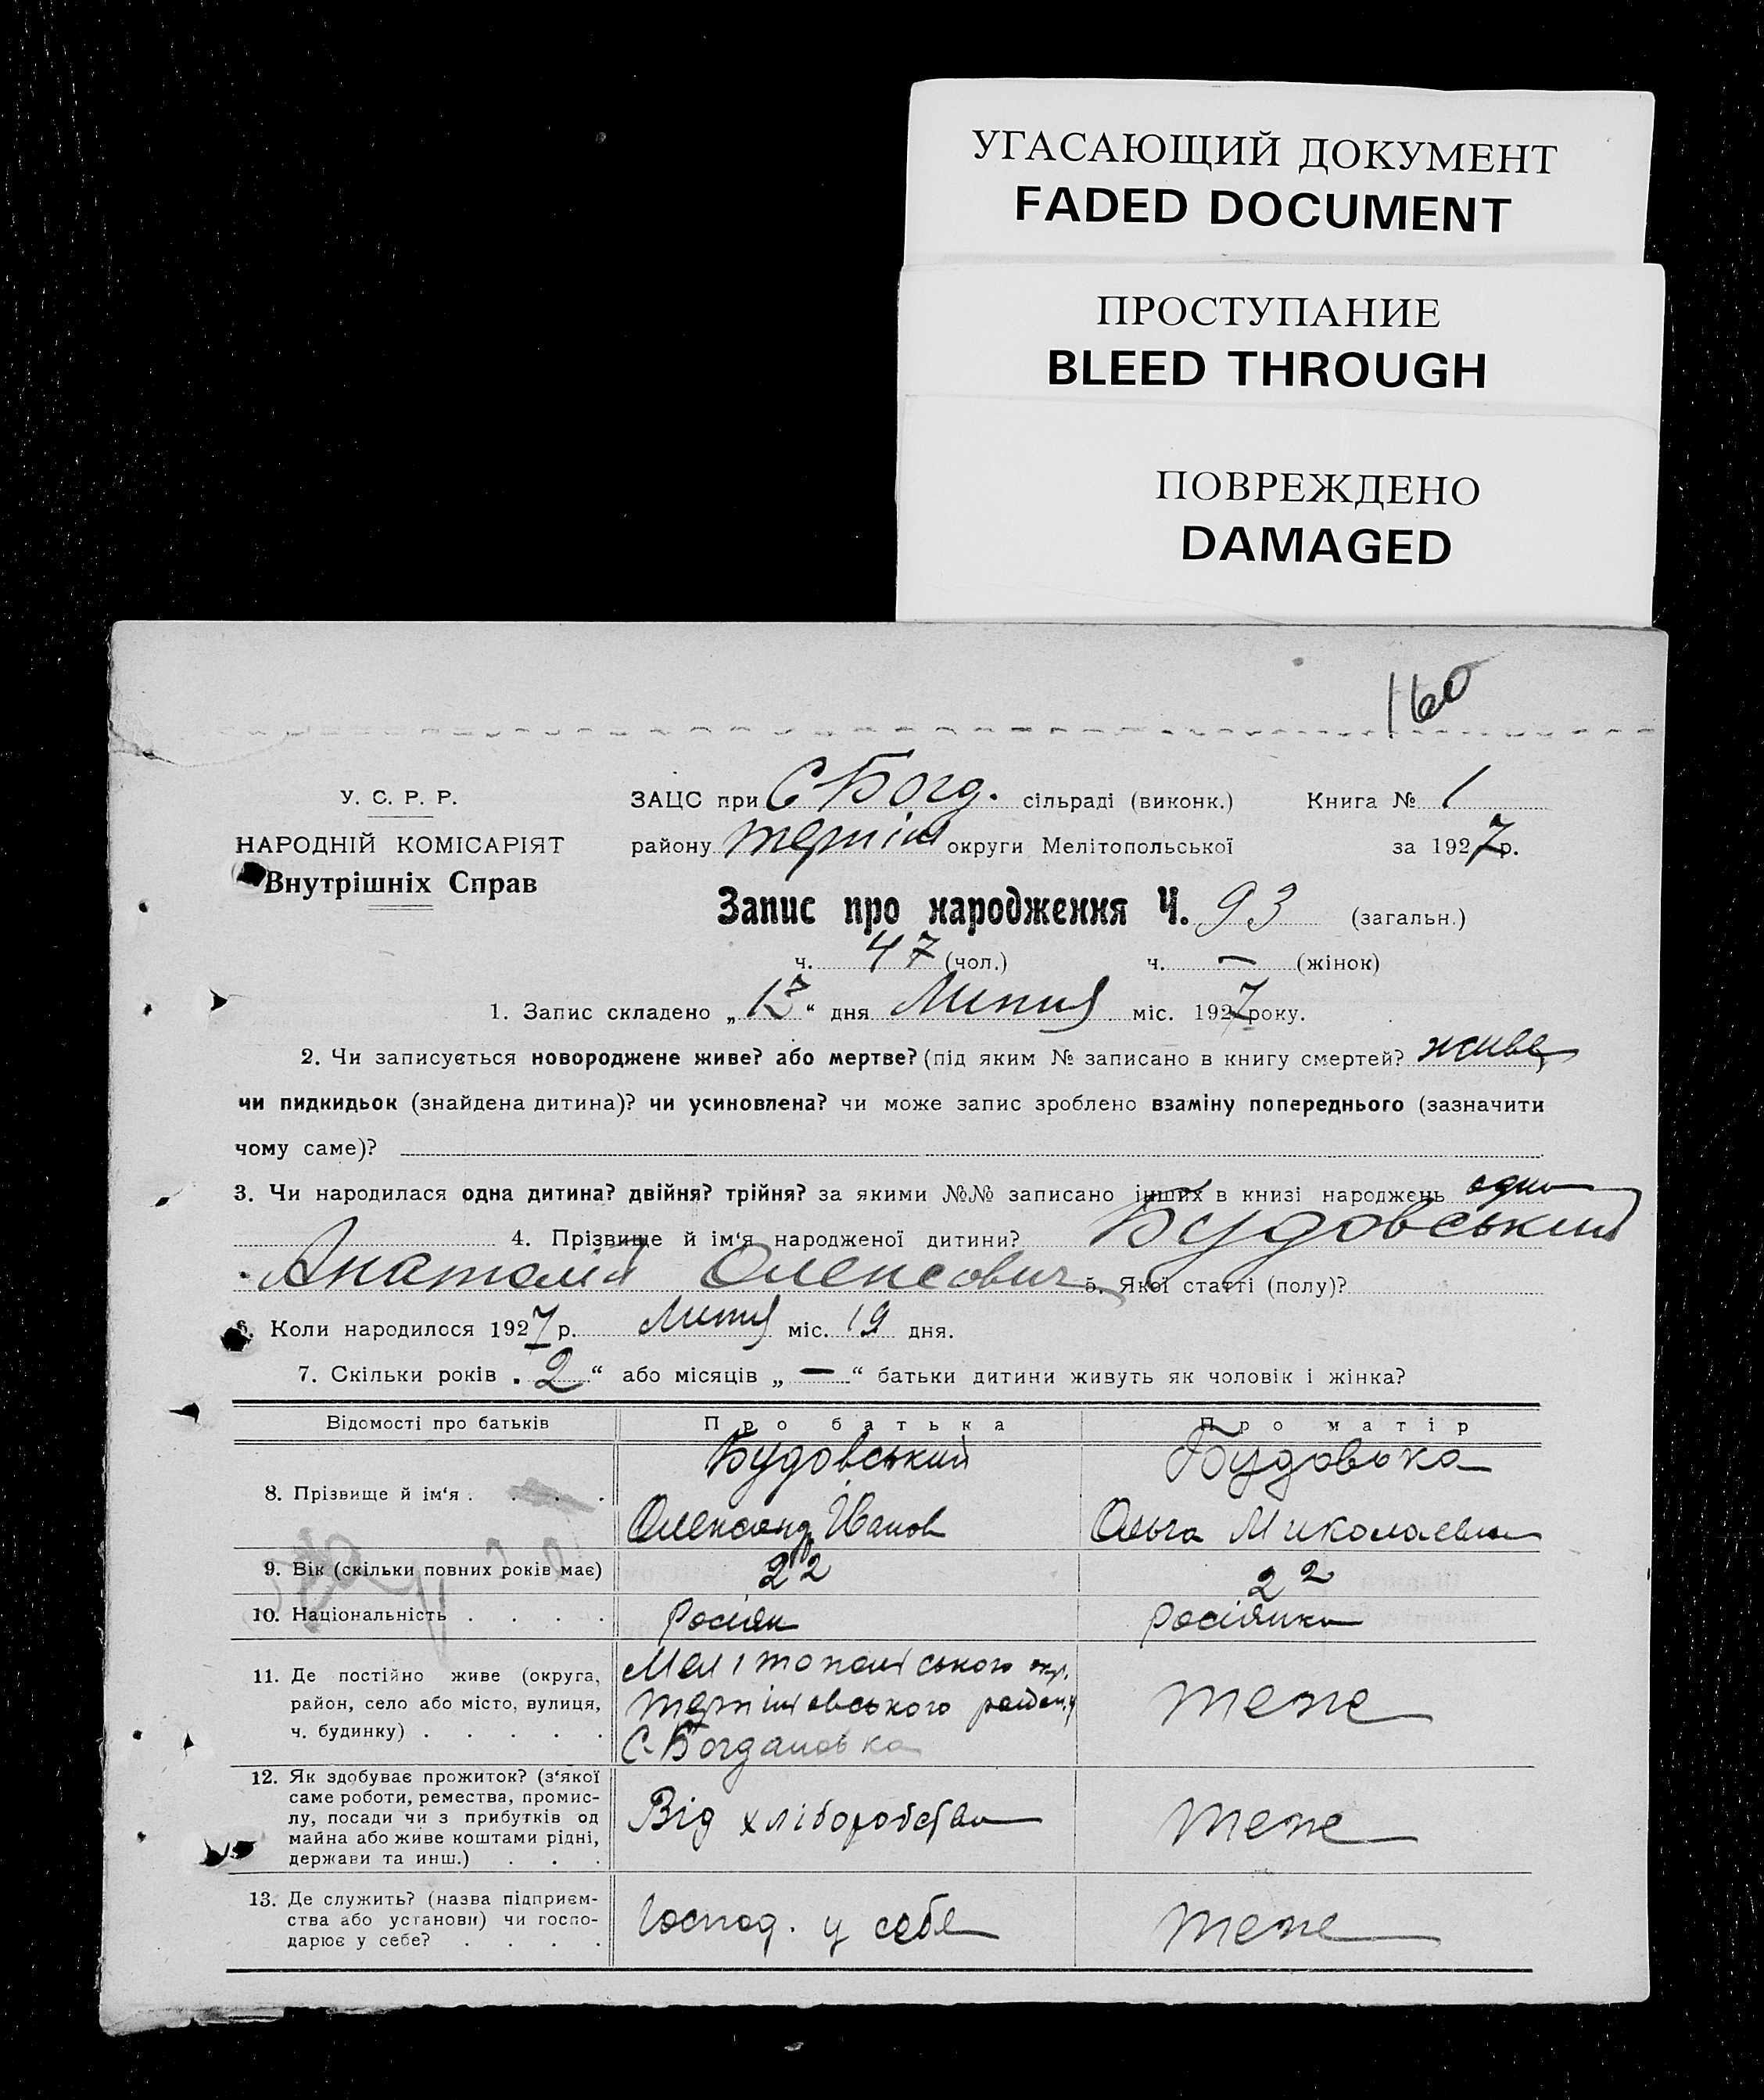 УГАСАЮЩИЙ ДОКУМЕНТ
FADED DOCUMENT
ПРОСТУПАНИЕ
BLEED THROUGH
ПОВРЕЖДЕНО
DAMAGED
160
У. С. Р. Р.
НАРОДНІЙ КОМІСАРІЯТ
Внутрішніх Справ
ЗАЦС при С Богд. сільраді (виконк.) Книга № 1
району округи Мелітопольської за 1927 р.
Запис про народження Ч. 93 (загальн.)
ч. 47 (чол.) ч. — (жінок)
1. Запис складено „ “ дня Липня міс. 1927 року.
2. Чи записується новороджене живе? або мертве? (під яким № записано в книгу смертей? живе,
чи пидкидьок (знайдена дитина)? чи усиновлена? чи може запис зроблено взаміну попереднього (зазначити
чому саме)?
3. Чи народилася одна дитина? двійня? трійня? за якими №№ записано інших в книзі народжень одно
4. Прізвище й ім‘я народженої дитини? Будовський
Анатолій Олексович 5. Якої статті (полу)?
6. Коли народилося 1927 р. Липня міс. 19 дня.
7. Скільки років „ 2 “ або місяців „ — “ батьки дитини живуть як чоловік і жінка?
Відомості про батьків Про батька Про матір
8. Прізвище й ім‘я . . . . Будовський Будовська
Олександ Іванов Ольга Миколаєвна
9. Вік (скільки повних років має) 22 22
10. Національність . . . . Росіян Росіянка
11. Де постійно живе (округа, район, село або місто, вулиця, ч. будинку) . . . . .
Мелітопольського окр.
району
С. Богдановка
теже
12. Як здобуває прожиток? (з‘якої саме роботи, ремества, промис-
лу, посади чи з прибутків од
майна або живе коштами рідні,
держави та инш.) . . .
Від хліборобства теже
13. Де служить? (назва підприєм-
ства або установи) чи госпо-
дарює у себе? . . . .
Господ. у себе теже